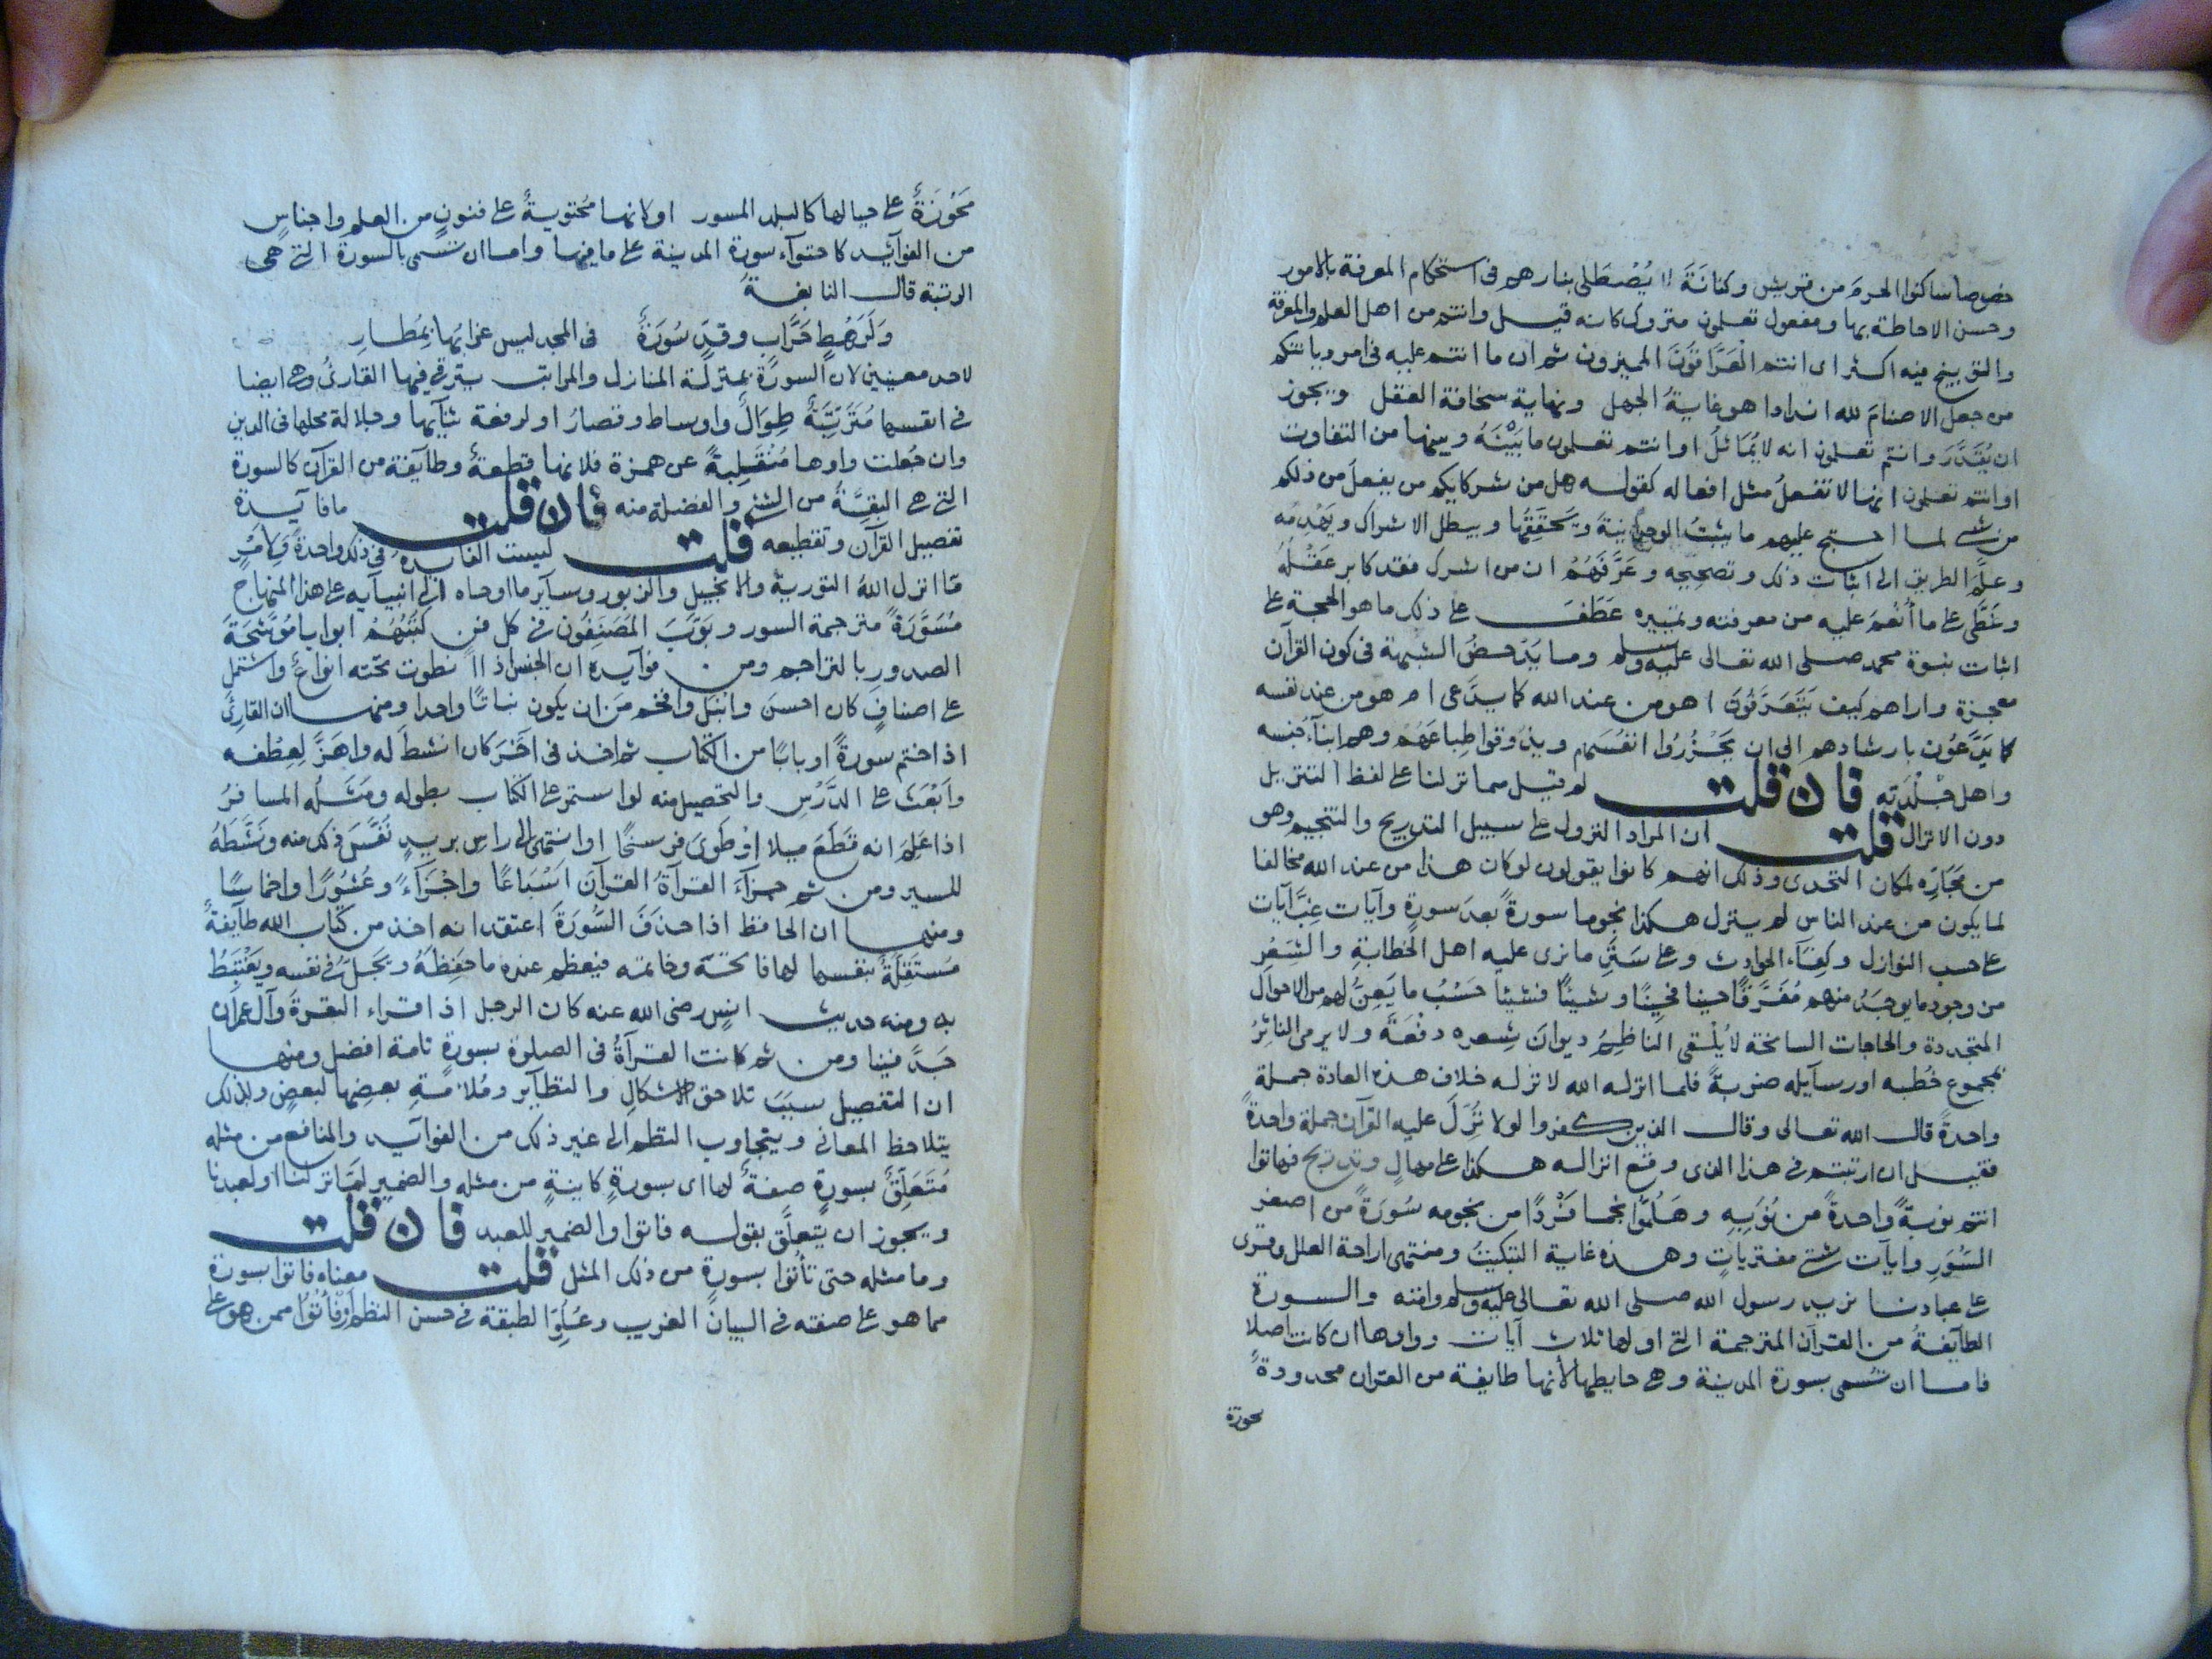 خصوصا ساكنوا الحرم من قريش وكنانَةَ لا يُصْطَلى بنارهم فى استحكام المعرفة بالامور
وحسن الاحاطة بها ومفعول تعلمون متروك كانه قيل وانتم من اهل العلم والمعرفة
والتوبيخ فيه اكثر اى انتم العَرَّافُونَ المميزون ثم ان ما انتم عليه فى امر ديانتكم
من جعل الاصنامَ لله اندادا هو غايةُ الجهل ونهاية سخافة العقل ويجوز
ان يُقَدَّرَ وانتم تعلمون انه لا يُمَاثَلُ او انتم تعلمون ما بَيْنَهُ وبينها من التفاوت
او انتم تعلمون انها لا تفعلُ مثل افعاله كقوله هل من شركايكم من يفعلُ من ذلكم
من شئ لما احتج عليهم ما يثبتُ الوحدانيةَ ويحققِّهَا ويبطل الاشراك ويَهْدِمُهِ
وعلَّمَ الطريق الى اثبات ذلك وتصحيحه وعَرَّفَهُمْ ان من اشرك فقد كابر عَقْلَهُ
وغَطَّى على ما أُنْعِمَ عليه من معرفته وتمييزه عَطَفَ على ذلك ما هو الحجة على
اثبات نبوة محمد صلى الله تعالى عليه وسلم وما يَدْحضُ الشبهة فى كون القرآن
معجزة واراهم كيف يَتَعَرَّفُونَ اهو من عند الله كما يدَّعى ام هو من عند نفسه
كما يَدَّعُون بارشادهم الى ان يَحْزُرُوا انفُسَهم ويذوقوا طِبَاعَهُمْ وهم ابنآءُ جنسه
واهل جِلْدَتِه فان قلت لم قيل مما نزلنا على لفظ التنزيل
دون الانزال قلت ان المراد النزول على سبيل التدريج والتنجيم وهو
من مَجَازِه لمكان التحدى وذلك انهم كانوا يقولون لو كان هذا من عند الله مخالفا
لما يكون من عند الناس لم ينزل هكذا نجوما سورةً بعدَ سورةٍ وآيات غِبَّ آيات
على حسب النوازل وكِفآء الحوادث وعلى سَنَنِ ما نرى عليه اهل الخطابةِ والشِعْرِ
من وجود ما يوجَدُ منهم مُفَرَّقًا حينا فحينًا وشيئًا فشيئا حَسَبُ ما يَعِنُّ لهم من الاحوال
المتجددة والحاجات السانحة لا يُلْقى الناظِمُ ديوانَ شِعره دفْعَةً ولا يرمى الناثِرُ
بمجموع خُطبه او رسآيله ضربةً فلما انزله الله لانزله خلاف هذه العادة جملة
واحدةً قال الله تعالى وقال الذين كفروا لولا نُزِّلَ عليه القرآن جملة واحدةً
فقيل ان ارتبتم فى هذا الذى وقع انزاله هكذا على مهال وتدريج فهاتوا
انتم نوبةً واحدةً من نُوَبِهِ وهَلُمُّوا نجما فَرْدًا من نجومه سُورَةً من اصغر
السُّوَرِ وايآت شتى مفتريات وهذه غاية التبكيت ومنتهى ازاحة العلل وقرى
على عبادنا نريد رسول الله صلى الله تعالى عليه وسلم وامته والسورة
الطآيفةُ من القرآن المترجمة التى اولها ثلاث آيات وواوها ان كانت اصلا
فاما ان تُسمى بسورة المدينة وهى حايطها لأنها طايفة من القران محدودةً
محوزة
مَحُوْزَةٌ على حيالها كالبلد المسور او لانها مُحتويةٌ على فنونٍ من العلم واجناسٍ
من الفوآئِد كاحتوآء سورة المدينة على ما فيها واما ان تسمى بالسورة التى هى
الرتبة قال النابغةُ
وَلَرَهْطِ حَرَّابٍ وقدٍّ سُورَةٌ فى المجد ليس غرابُها بمُطارِ
لاحد معنيين لان السورَة بمنزلة المنازل والمراتب يترقى فيها القارئُ وهى ايضا
فى انفسها مُتَرَتِبَةٌ طِوَالٌ واوساط وقصارُ او لرفعة شآنها وجلالة محلها فى الدين
وان جُعلت واوها مُنْقَلِبةً عن همزة فلانها قطعةٌ وطآيفة من القرآن كالسورة
التى هى البقيَّةُ من الشئ والفضلة منه فان قلت ما فآيدة
تفصيل القرآن وتقطيعه قلت ليست الفايدة فى ذلك واحدةً وَلأمرٍ
مَّا انزل اللهُ التورية والانجيل والزبور وسآير ما اوحاه الى انبيآيه على هذا المنهاج
مُسَوَّرَةً مترجمة السور وبَوَّبَ المُصَنِفُون فى كل فن كُتبَهُمْ ابوابا مُوَشَّحَةَ
الصدورِ بالتراجم ومن فوآيده ان الجنس اذا انطوت تحته انواعٌ واشتمل
على اصنافٍ كان احسنَ وانبَلَ وافخم من ان يكون بيانًا واحدا ومنها ان القارئَ
اذا ختم سورةً او بابًا من الكتاب ثم اخذ فى آخَرَ كان انشط له واهَزَّ لِعِطْفه
وابْعَثَ على الدَّرْسِ والتحصيل منه لو استمر على الكتاب بطوله ومَثَلُه المسافرُ
اذا عَلِمَ انه قَطَعَ ميلا اوْ طَوَىَ فرسخًا او انتهى الى راسِ بريدٍ نَفَّسَ ذلك منه ونَشَّطَهُ
للمسير ومن ثم جزآءَ القرآةُ القرآنَ اَسْبَاعًا واجْزَاءً وعُشُورًا واخماسًا
ومنها ان الحافظ اذا حذَقَ السُّورَةَ اعتقد انه اخذ من كتاب الله طآيفةً
مُستَقِلَةً بنفسها لها فاتحَة وخاتمه فيعظم عنده ما حَفِظَهُ ويَجَلُّ فى نفسه ويَغْتَبِطُ
به ومنه حديث انسٍ رضى الله عنه كان الرجل اذا قراء البقرةَ وآل عمران
جَدَّ فينا ومن ثم كانت القرآةُ فى الصلوة بسورةٍ تامة افضل ومنها
ان التفصيل سبَبَ تلاحق الاشكالِ والنظآير ومُلآمَةِ بعضِها لبعضٍ وبذلك
يتلاحظ المعانى ويتجاوب النظم الى غير ذلك من الفوآيد والمنافع من مثله
مُتَعَلِقٌ بسورةٍ صفةٌ لها اى بسورةٍ كاينةٍ من مثله والضمير لمَّا نزلنا او لعبدنا
ويجوز ان يتعلَّق بقوله فاتوا والضمير للعبد فان قلت
وما مثله حتى تأتوا بسورةٍ من ذلك المثل قلت معناه فاتوا بسورة
مما هو على صفته فى البيان الغريب وعُلِوّ الطبقة فى حسن النظم اوْ فأتُوْا ممن هو على